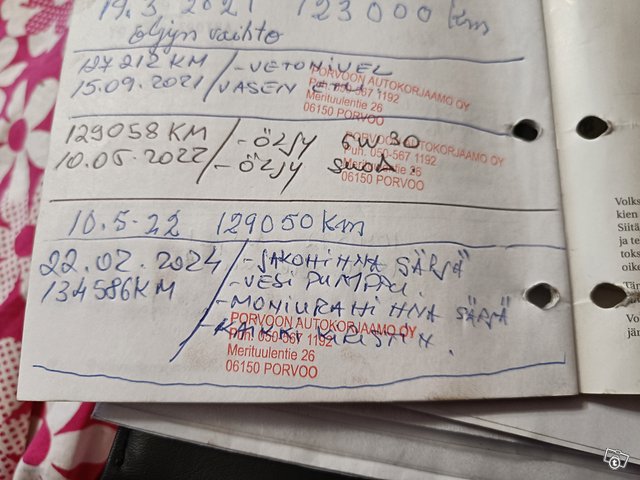 19.3.2021 123000 km
öljyn vaihto
127212 KM /- VETONIVEL
15.09.2021 /VASEN ETU.
PORVOON AUTOKORJAAMO OY
Puh. 050-567 1192
Merituulentie 26
06150 PORVOO
129058 KM /- ÖLJY 5W30
10.05.2022 /- ÖLJY SUOD.
PORVOON AUTOKORJAAMO OY
Puh. 050-567 1192
Merituulentie 26
06150 PORVOO
10.5-22 129050 km
22.02.2024 /- JAKOHIHNA SÄRJÄ
134586KM /- VESIPUMPPU.
- MONIURAHIHNA SÄRJÄ
- KAIKKI KIRISTIN.
PORVOON AUTOKORJAAMO OY
Puh. 050-567 1192
Merituulentie 26
06150 PORVOO
Volks
kien
Siitä
ja te
toks
oikea
Tär
Vol
jär